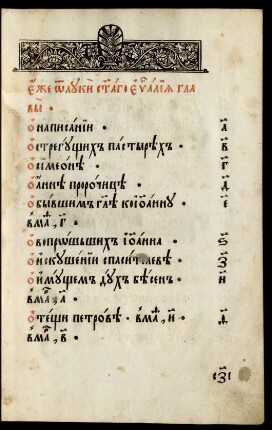 Е҆́же ѿ лꙋкѝ ст҃а́го є҆ѵⷢ҇а́лїѧ гла
вы̀ .
О҆ написа́нїи . а҃
О҆ стрегꙋ́щихъ па́стырехъ . в҃
О҆ сїмеѡ́нѣ . г҃
О҆ а́ннѣ прⷪ҇ро́чицѣ . д҃
О҆ бы́вшемъ гл҃ѣ ко і҆ѡа́ннꙋ . є҃
в мⷴ҇, г҃ .
О҆ вопроша́шихъ і҆ѡа́нна . ѕ҃
О҆ и҆скꙋше́нїи спаси́телевѣ . з҃
О҆ и҆мꙋ́щемъ дꙋ́хъ бѣ́сенъ . и҃
в мⷬ҇, а҃ .
О҆ те́щи петро́вѣ . в мⷴ҇, и҃ . д҃
в мⷬ҇, в҃ .